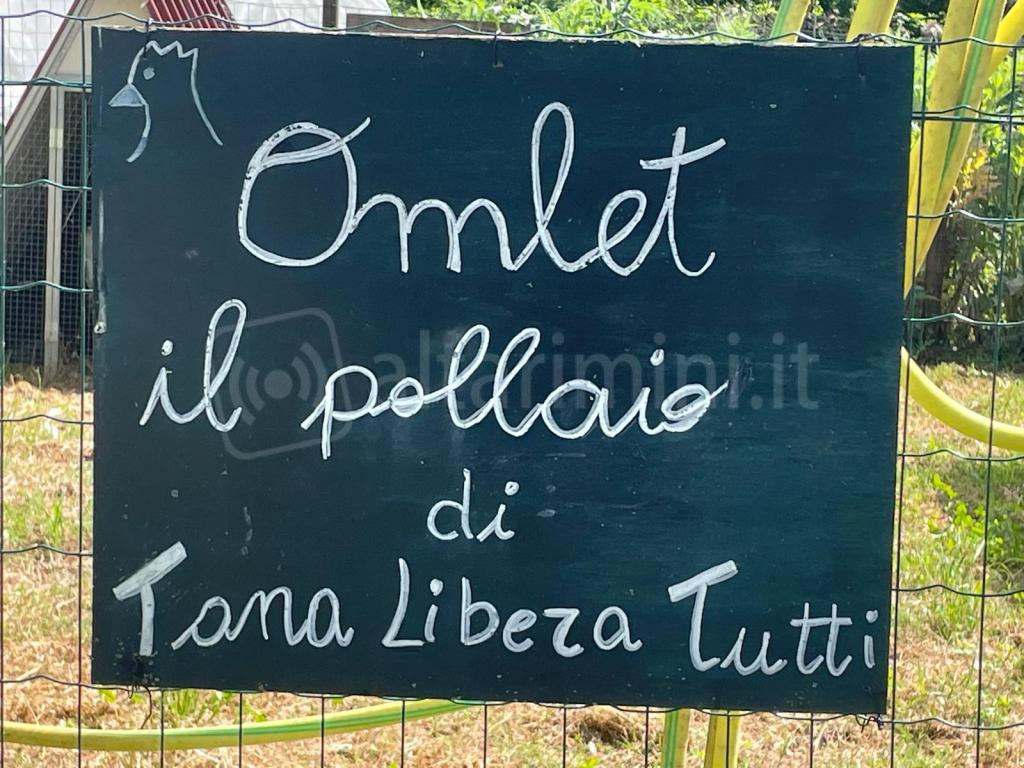 Omlet
il pollaio
di
Tana Libera Tutti
alfarimini.it